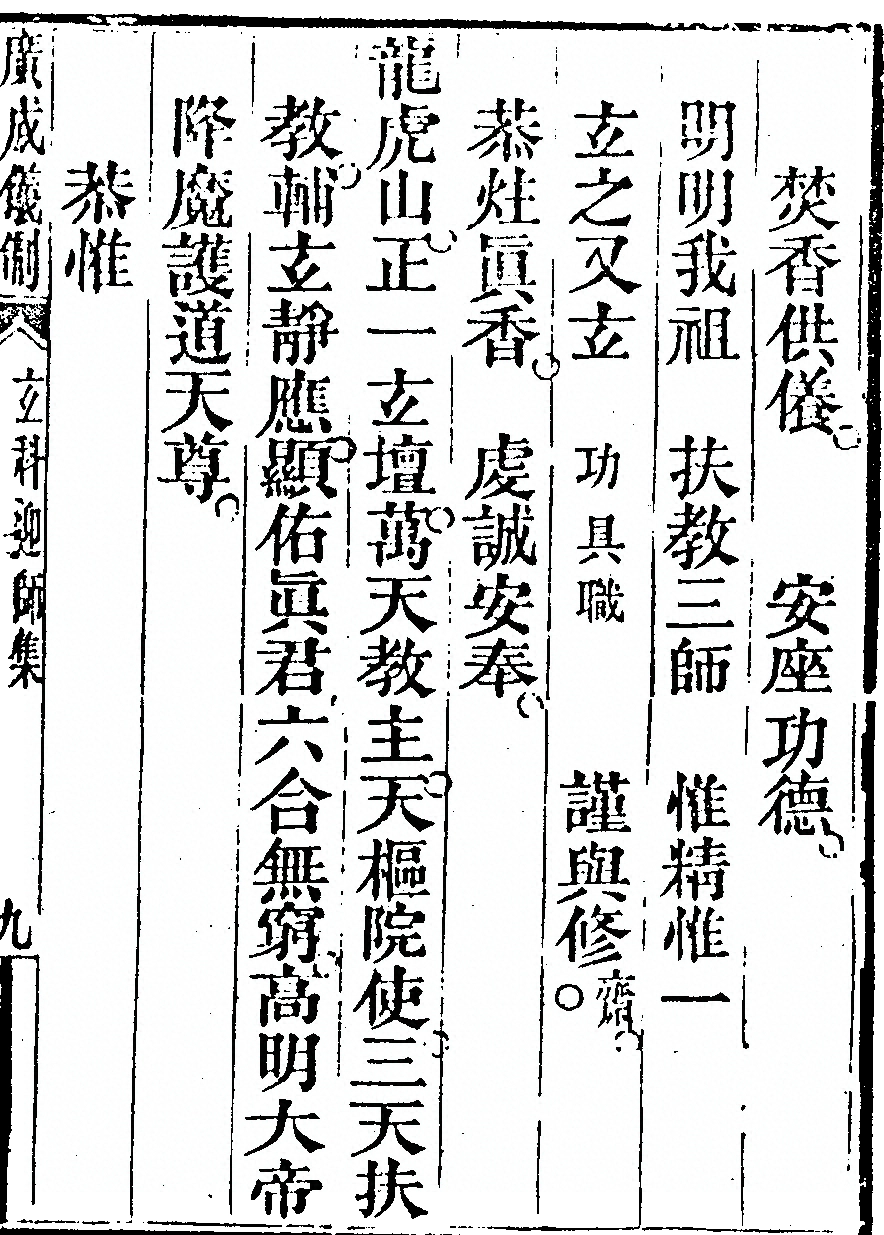 焚香供儀○　安座功德○
明明我祖　扶教三師　惟精惟一
玄之又玄　功具職　謹與修○齋○
恭炷眞香○　虔誠安奉○
龍虎山正○一玄壇萬○天教主天○樞院使三○天扶
教輔○玄靜應顯○佑眞君六合無窮○高明大帝
降魔護道天尊○
恭惟
廣成儀制　玄科迎師集　九